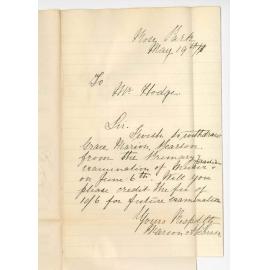 Park
May 19th
To
Mr Hodge
Sir.
I wish to withdraw
Grace Marion Shearson
from the Primary
examination of
on June 6th. Will you
please credit the fee of
10/6 for future examination
Yours Respectfly
Marion